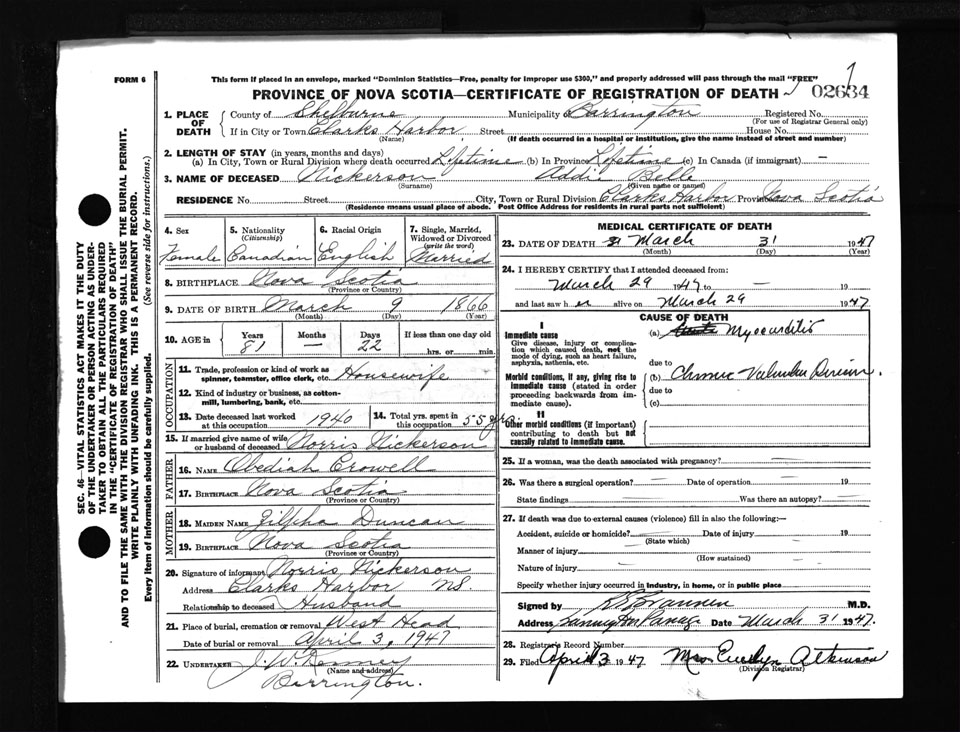 FORM 6
This form if placed in an envelope, marked "Dominion Statistics—Free, penalty for improper use $300," and properly addressed will pass through the mail "FREE"
PROVINCE OF NOVA SCOTIA—CERTIFICATE OF REGISTRATION OF DEATH
02634
1. PLACE OF DEATH
County of Shelburne Municipality Barrington Registered No.
(For use of Registrar General only)
If in City or Town Clarks Harbor Street House No.
(Name) (If death occurred in a hospital or institution, give the name instead of street and number)
2. LENGTH OF STAY (in years, months and days)
(a) In City, Town or Rural Division where death occurred Lifetime (b) In Province Lifetime (c) In Canada (if immigrant) —
3. NAME OF DECEASED Nickerson Addie Belle
(Surname) (Given name or names)
RESIDENCE No. Street City, Town or Rural Division Clarks Harbor Province Nova Scotia
(Residence means usual place of abode. Post Office Address for residents in rural parts not sufficient)
4. Sex
Female
5. Nationality
(Citizenship)
Canadian
6. Racial Origin
English
7. Single, Married, Widowed or Divorced
(write the word)
Married
8. BIRTHPLACE Nova Scotia
(Province or Country)
9. DATE OF BIRTH March 9 1866
(Month) (Day) (Year)
10. AGE in
Years Months Days If less than one day old
81 — 22 hrs. or min.
OCCUPATION
11. Trade, profession or kind of work as spinner, teamster, office clerk, etc. Housewife
12. Kind of industry or business, as cotton-mill, lumbering, bank, etc.
13. Date deceased last worked at this occupation 1940
14. Total yrs. spent in this occupation 55 yrs.
15. If married give name of wife or husband of deceased Norris Nickerson
FATHER
16. NAME Obediah Crowell
17. BIRTHPLACE Nova Scotia
(Province or Country)
MOTHER
18. MAIDEN NAME Zilpha Duncan
19. BIRTHPLACE Nova Scotia
(Province or Country)
20. Signature of informant Norris Nickerson
Address Clarks Harbor NS.
Relationship to deceased Husband
21. Place of burial, cremation or removal West Head
Date of burial or removal April 3, 1947
22. UNDERTAKER J. W. Kenney
(Name and address)
Barrington.
MEDICAL CERTIFICATE OF DEATH
23. DATE OF DEATH March 31 1947
(Month) (Day) (Year)
24. I HEREBY CERTIFY that I attended deceased from:
March 29 1947 to — 19
and last saw her alive on March 29 1947
CAUSE OF DEATH
I
Immediate cause
Give disease, injury or complication which caused death, not the mode of dying, such as heart failure, asphyxia, asthenia, etc.
(a) Myocarditis
due to
Morbid conditions, if any, giving rise to immediate cause (stated in order proceeding backwards from immediate cause).
(b) Chronic Valvular Disease.
due to
(c)
II
Other morbid conditions (if important) contributing to death but not causally related to immediate cause.
25. If a woman, was the death associated with pregnancy? —
26. Was there a surgical operation? — Date of operation — 19
State findings Was there an autopsy? —
27. If death was due to external causes (violence) fill in also the following:—
Accident, suicide or homicide? Date of injury 19
(State which)
Manner of injury
(How sustained)
Nature of injury
Specify whether injury occurred in industry, in home, or in public place
Signed by M.D.
Address Date March 31 1947.
28. Registrar's Record Number
29. Filed April 3 1947 Mrs Evelyn Atkinson
(Division Registrar)
SEC. 46—VITAL STATISTICS ACT MAKES IT THE DUTY
OF THE UNDERTAKER OR PERSON ACTING AS UNDER-
TAKER TO OBTAIN ALL THE PARTICULARS REQUIRED
IN THE "CERTIFICATE OF REGISTRATION OF DEATH"
AND TO FILE THE SAME WITH THE DIVISION REGISTRAR WHO SHALL ISSUE THE BURIAL PERMIT.
WRITE PLAINLY WITH UNFADING INK. THIS IS A PERMANENT RECORD.
Every item of information should be carefully supplied. (See reverse side for instructions.)